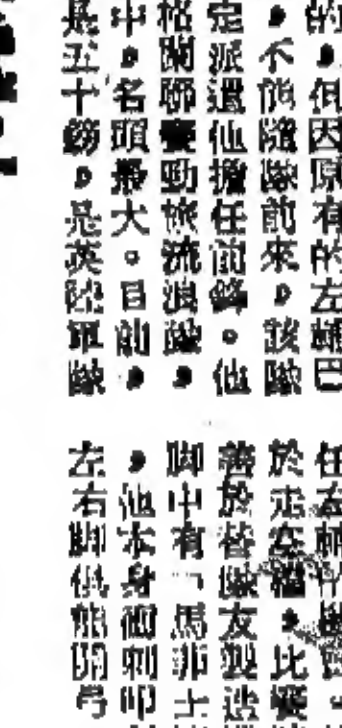 的，但因原有的左輔巴
，不能隨隊前來，該隊
定派還他擔任前鋒。他
格蘭聯賽勁旅流浪隊，
中，名頭最大。目前，
是五十鎊，是英陸軍隊
任左輔
於走空檔，比較
善於替隊友製造
脚中有「馬菲士
，他本身
左右脚俱能開弓